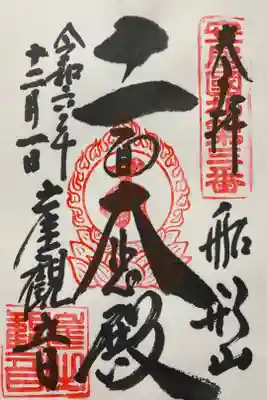 奉拝
船形山
十一面大悲殿
崖觀音
令和六年
十二月一日